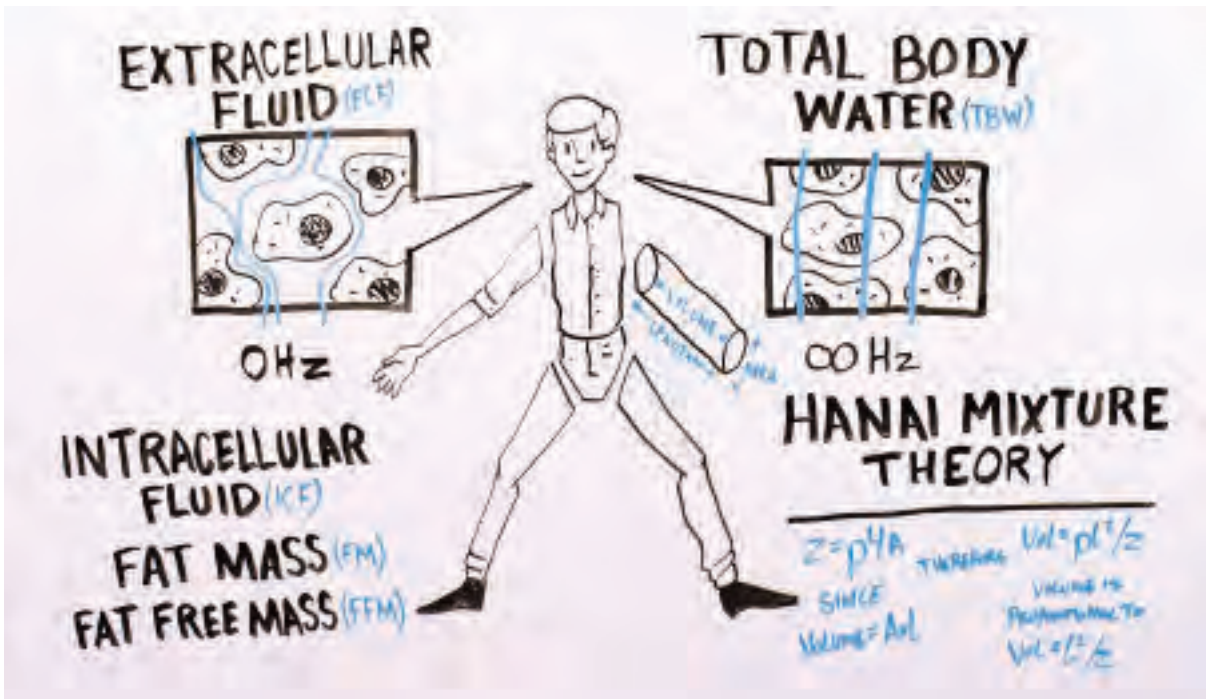 EXTRACELLULAR
FLUID (ECF)
0Hz
TOTAL BODY
WATER (TBW)
∞ Hz
VOLUME
LENGTH
AREA
INTRACELLULAR
FLUID (ICF)
FAT MASS (FM)
FAT FREE MASS (FFM)
HANAI MIXTURE
THEORY
Z=ρL/A
SINCE
VOLUME=AxL
THEREFORE
Vol=ρL²/Z
VOLUME IS
PROPORTIONAL TO
Vol=L²/Z